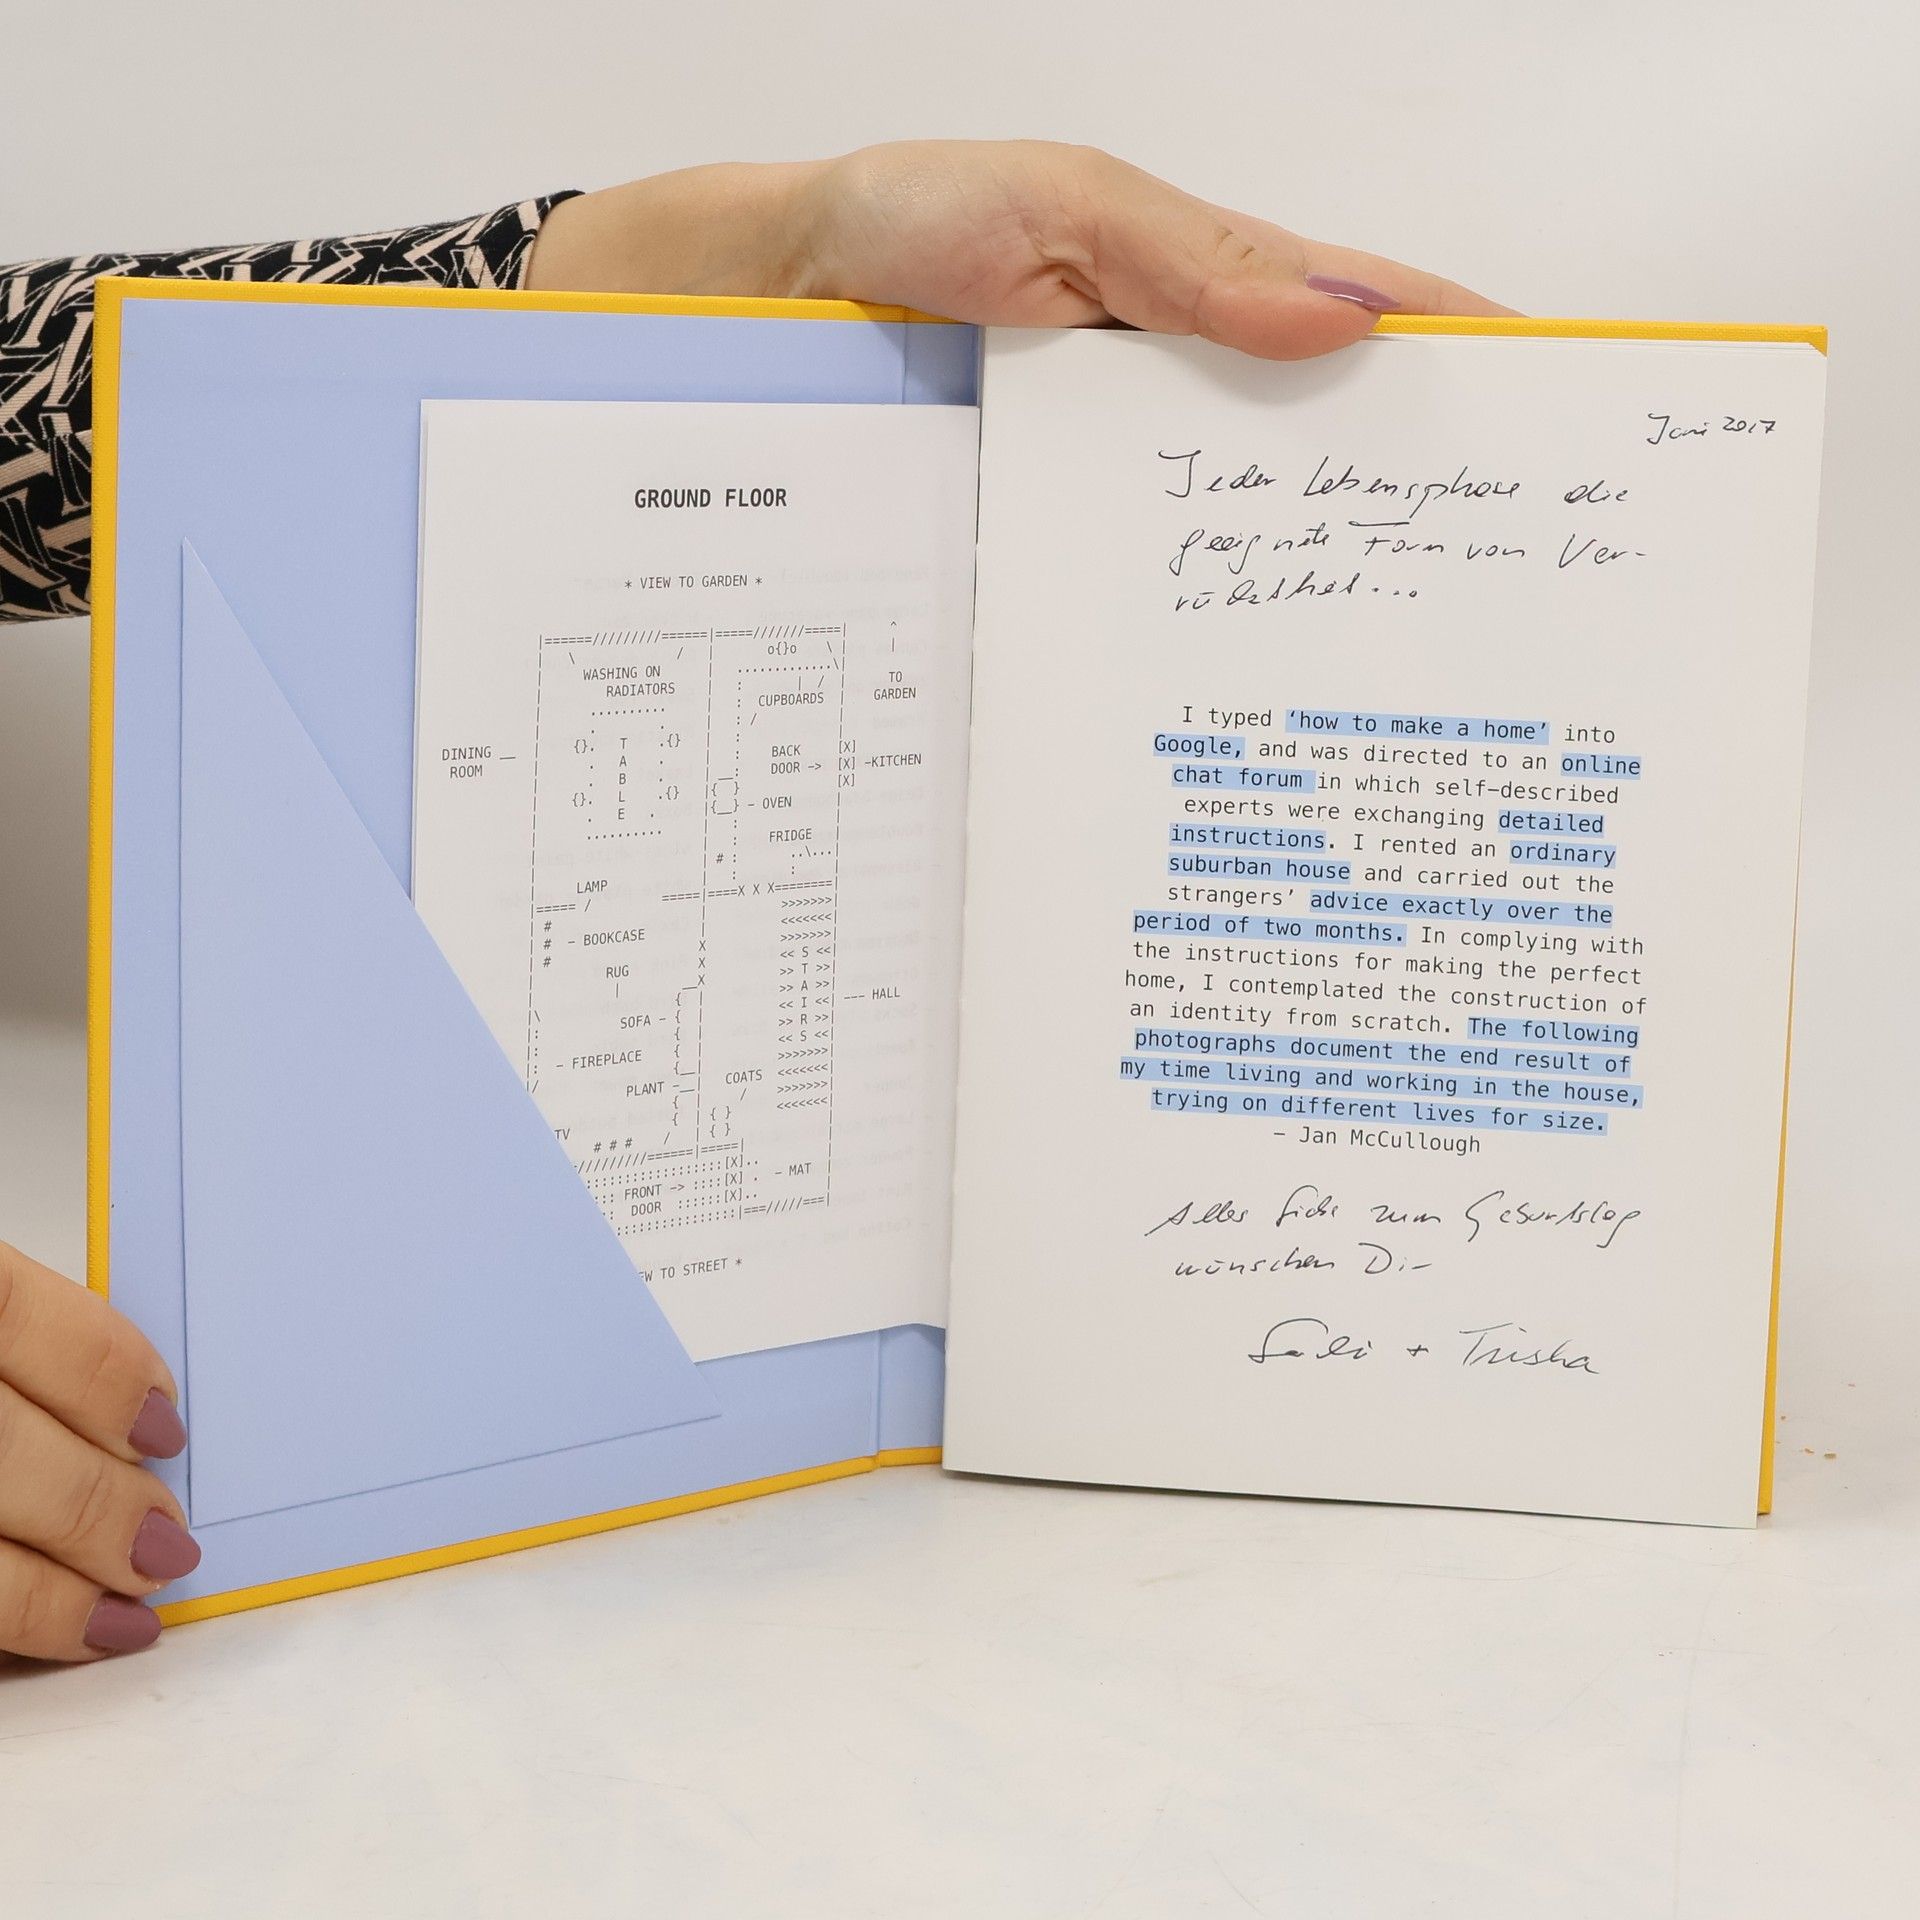 GROUND FLOOR
* VIEW TO GARDEN *
|======/////////======|=====///////=====|
o{}o
WASHING ON
RADIATORS
CUPBOARDS
^
|
TO
GARDEN
DINING
ROOM
T
A
B
L
E
BACK
DOOR ->
[X]
[X] -KITCHEN
[X]
- OVEN
FRIDGE
LAMP
# - BOOKCASE
RUG
SOFA -
- FIREPLACE
PLANT -
TV
# # #
COATS
>>>>>>>
<<<<<<<
>>>>>>>
<< S <<
>> T >>
>> A >>
<< I <<
>> R >>
<< S <<
>>>>>>>
<<<<<<<
>>>>>>>
<<<<<<<
--- HALL
FRONT ->
DOOR
- MAT
EW TO STREET *
Juni 2017
Jeder Lebensphase die
geeignete Form von Ver-
rücktheit...
I typed ‘how to make a home’ into
Google, and was directed to an online
chat forum in which self-described
experts were exchanging detailed
instructions. I rented an ordinary
suburban house and carried out the
strangers’ advice exactly over the
period of two months. In complying with
the instructions for making the perfect
home, I contemplated the construction of
an identity from scratch. The following
photographs document the end result of
my time living and working in the house,
trying on different lives for size.
– Jan McCullough
Alles Liebe zum Geburtstag
wünschen Dir
+ Trisha